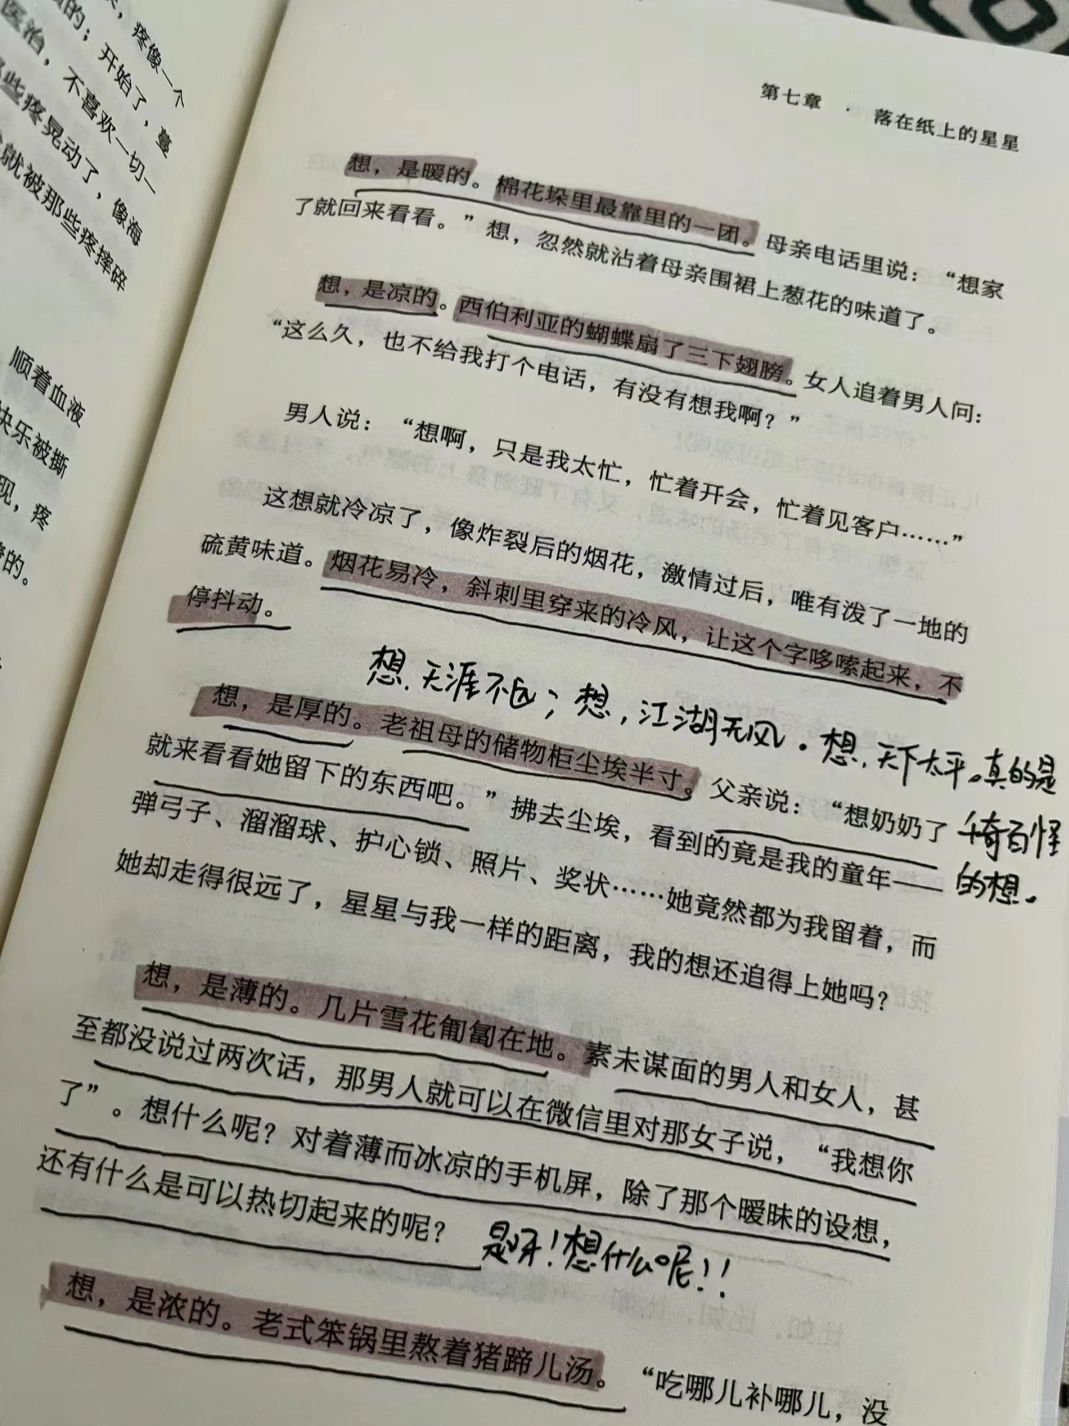 疼像一个
的；开始了，蔓
医治，不喜欢一切一
些疼晃动了，像海
就被那些疼摔碎
顺着血液
快乐被撕
现，疼
的。
第七章 · 落在纸上的星星
想，是暖的。棉花垛里最靠里的一团。母亲电话里说：“想家
了就回来看看。”想，忽然就沾着母亲围裙上葱花的味道了。
想，是凉的。西伯利亚的蝴蝶扇了三下翅膀。女人追着男人问：
“这么久，也不给我打个电话，有没有想我啊？”
男人说：“想啊，只是我太忙，忙着开会，忙着见客户……”
这想就冷凉了，像炸裂后的烟花，激情过后，唯有泼了一地的
硫黄味道。烟花易冷，斜刺里穿来的冷风，让这个字哆嗦起来，不
停抖动。
想，天涯不远；想，江湖无风。想，天下太平。真的是
千奇百怪
的想。
想，是厚的。老祖母的储物柜尘埃半寸。父亲说：“想奶奶了
就来看看她留下的东西吧。”拂去尘埃，看到的竟是我的童年——
弹弓子、溜溜球、护心锁、照片、奖状……她竟然都为我留着，而
她却走得很远了，星星与我一样的距离，我的想还追得上她吗？
想，是薄的。几片雪花匍匐在地。素未谋面的男人和女人，甚
至都没说过两次话，那男人就可以在微信里对那女子说，“我想你
了”。想什么呢？对着薄而冰凉的手机屏，除了那个暧昧的设想，
还有什么是可以热切起来的呢？
是呀！想什么呢！！
想，是浓的。老式笨锅里熬着猪蹄儿汤。“吃哪儿补哪儿，没